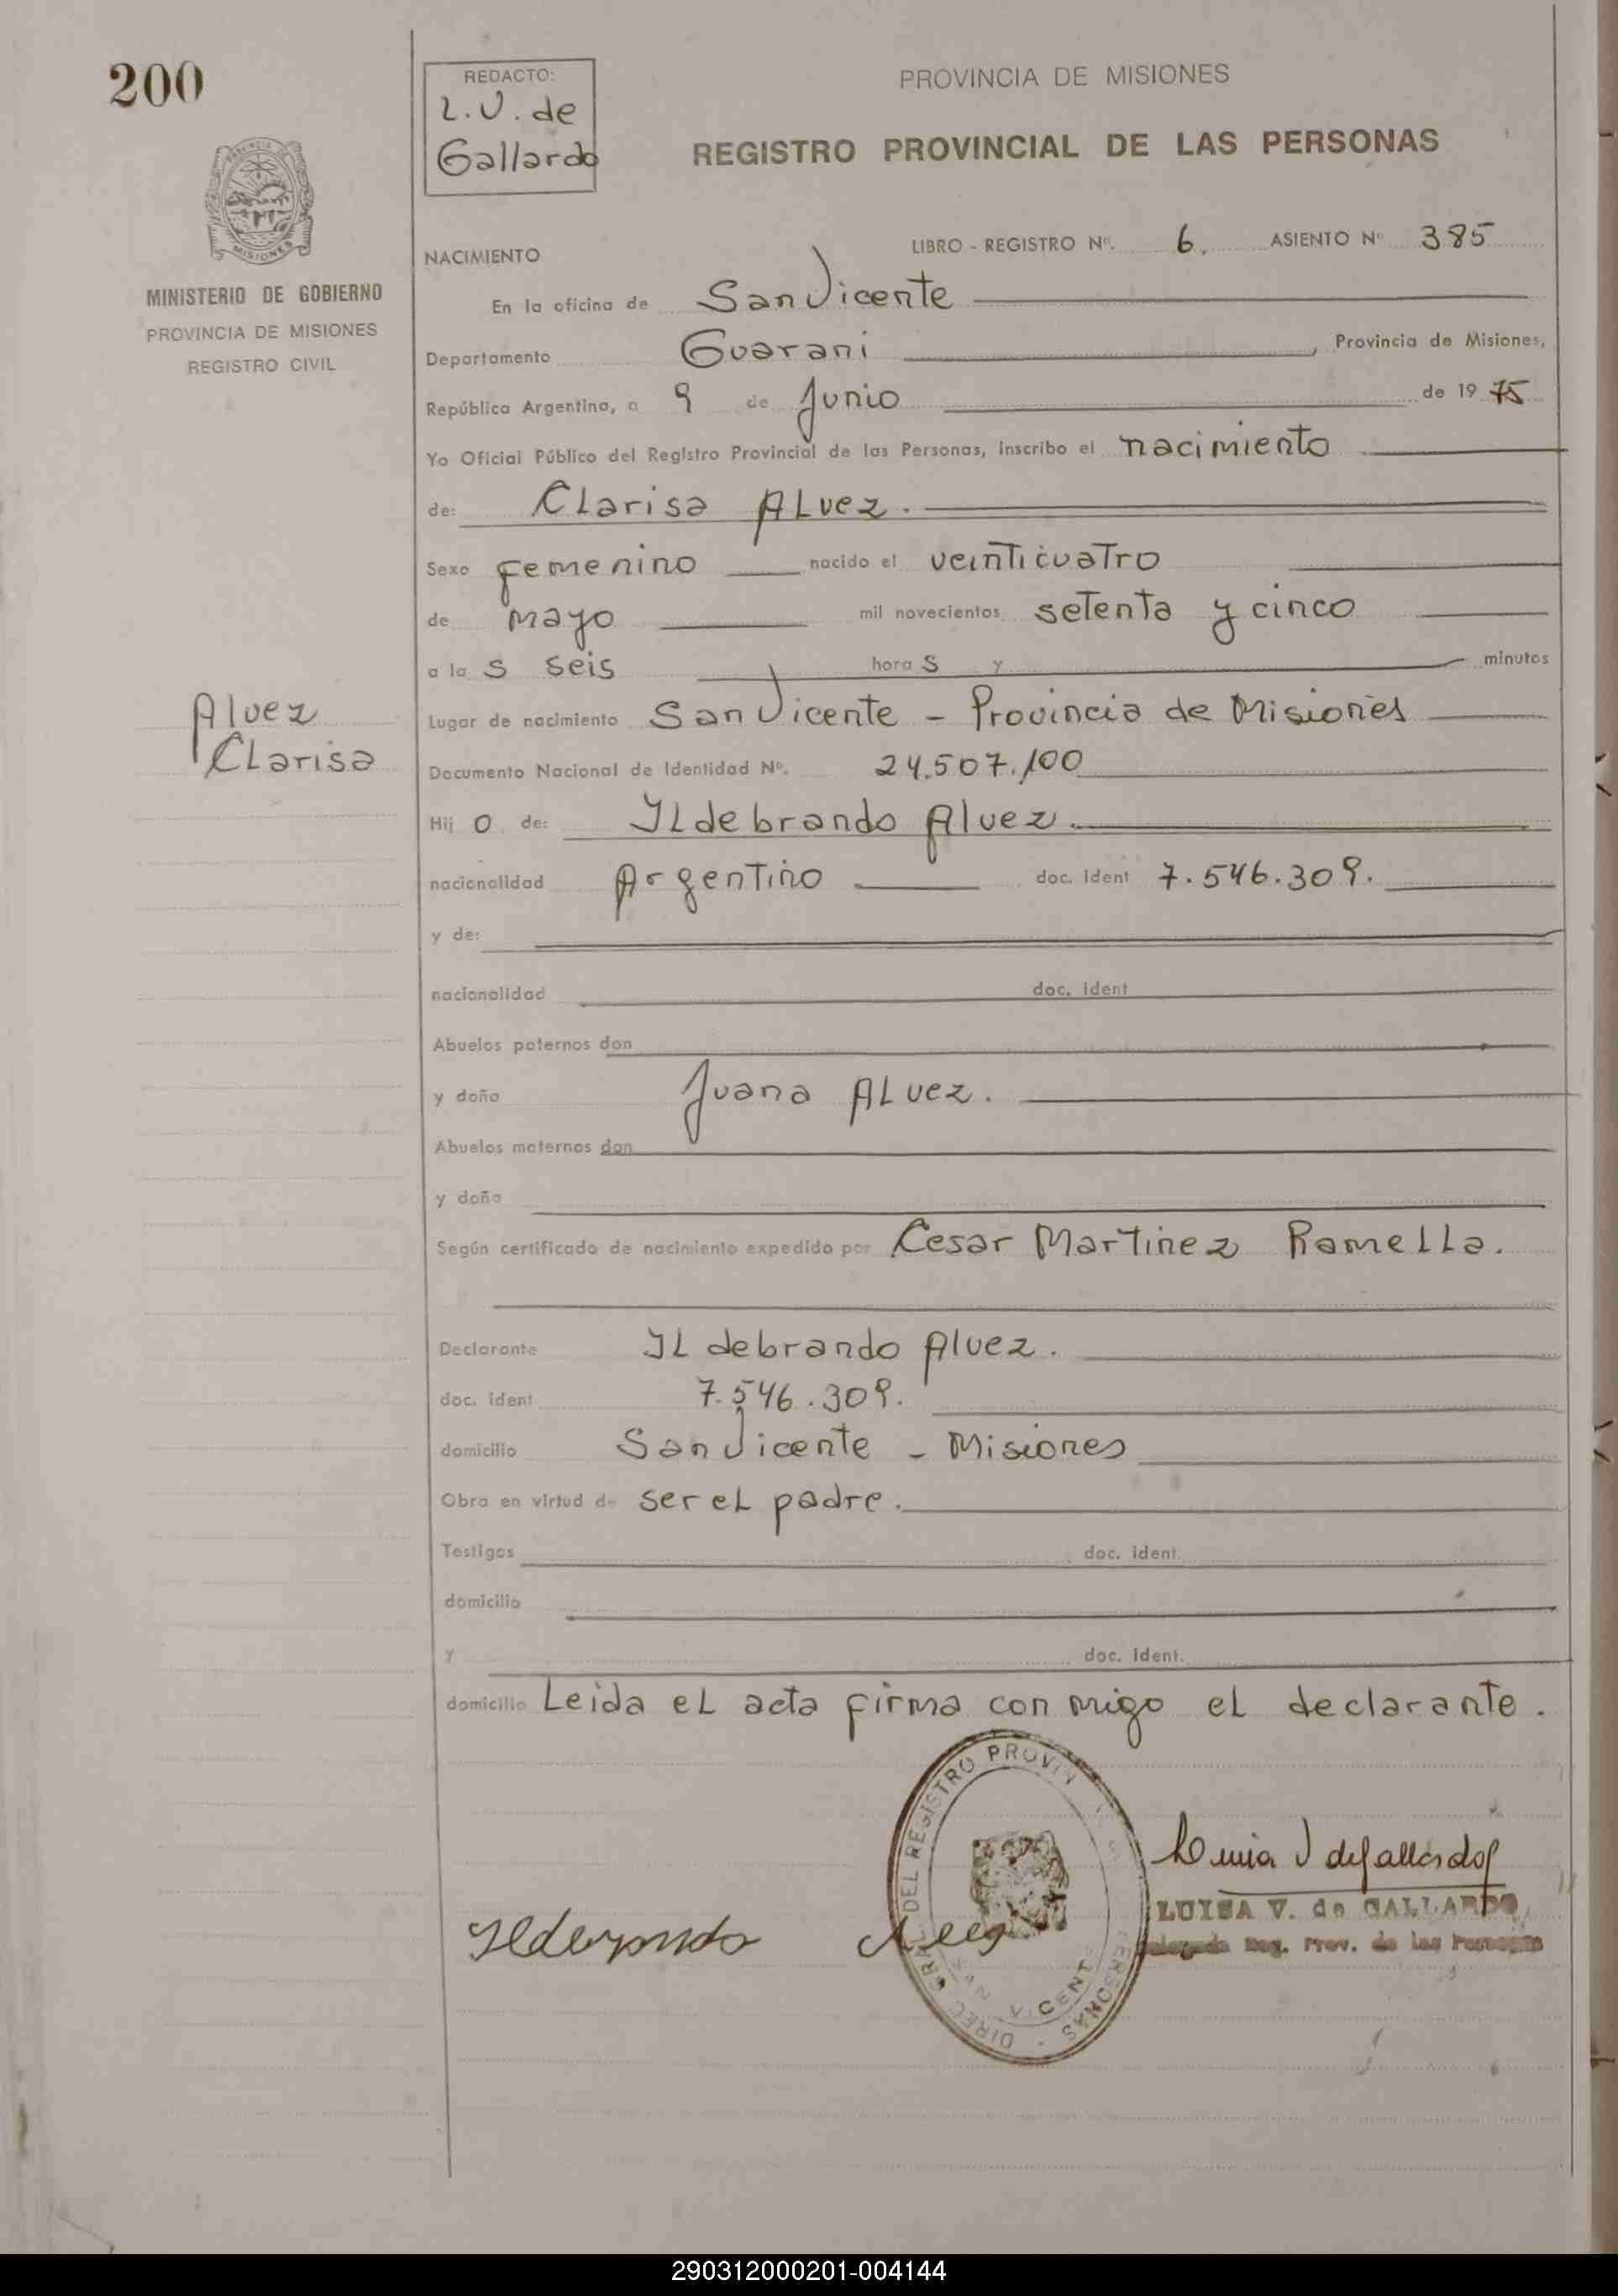 200
REDACTO:
L.V. de
Gallardo
PROVINCIA DE MISIONES
REGISTRO PROVINCIAL DE LAS PERSONAS
MISIONES
MINISTERIO DE GOBIERNO
PROVINCIA DE MISIONES
REGISTRO CIVIL
NACIMIENTO
LIBRO - REGISTRO Nº. 6. ASIENTO Nº 385
En la oficina de San Vicente
Departamento Guarani, Provincia de Misiones,
República Argentina, a 9 de Junio de 1975
Yo Oficial Público del Registro Provincial de las Personas, inscribo el nacimiento
de: Clarisa ALvez.
Sexo femenino nacido el veinticuatro
de mayo mil novecientos setenta y cinco
a las seis horas y minutos
Alvez
Clarisa
Lugar de nacimiento San Vicente - Provincia de Misiones
Documento Nacional de Identidad Nº. 24.507.100
Hijo de: ILdebrando Alvez.
nacionalidad Argentino doc. ident 7.546.309.
y de:
nacionalidad doc. ident
Abuelos paternos don
y doña Juana ALvez.
Abuelos maternos don
y doña
Según certificado de nacimiento expedido por Cesar Martinez RameLLa.
Declarante ILdebrando Alvez.
doc. ident 7.546.309.
domicilio San Vicente - Misiones
Obra en virtud de ser eL padre.
Testigos doc. ident.
domicilio
y doc. ident.
domicilio Leida eL acta firma con migo eL declarante.
DIREC. GRAL. DEL REGISTRO PROVIN PERSONAS
VICENTE
LUISA V. de GALLARDO
Delegada Reg. Prov. de las Personas
290312000201-004144